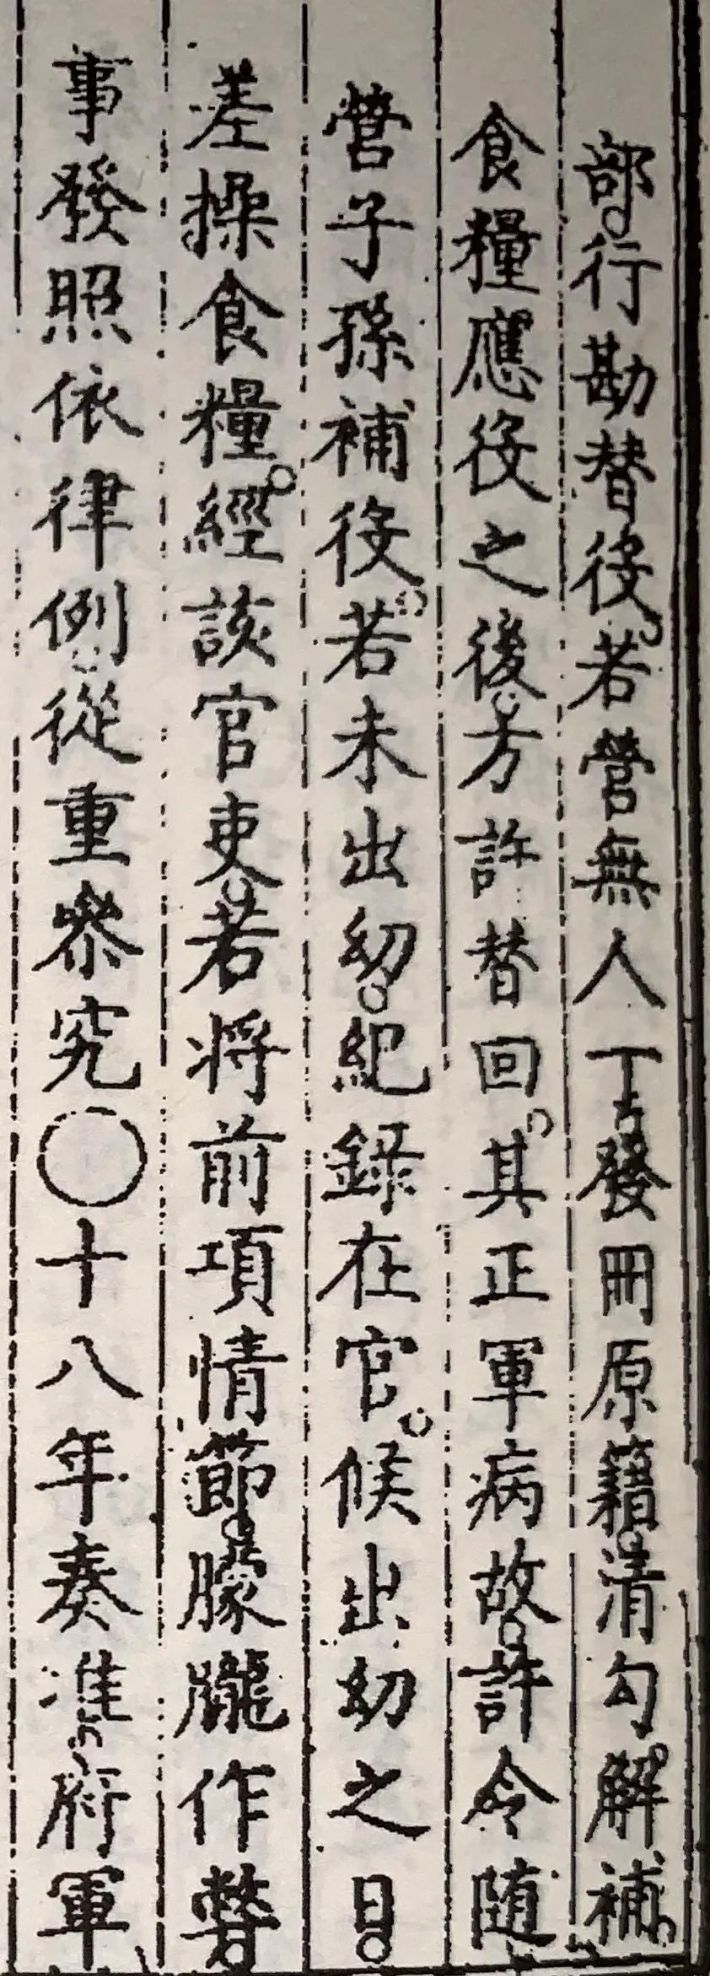 部行勘替役若營無人丁發冊原籍清勾解補
食糧應役之後方許替回其正軍病故許令随
營子孫補役若未出幼紀錄在官候出幼之日
差操食糧經該官吏若将前項情節朦朧作弊
事發照依律例從重叅究○十八年奏准府軍